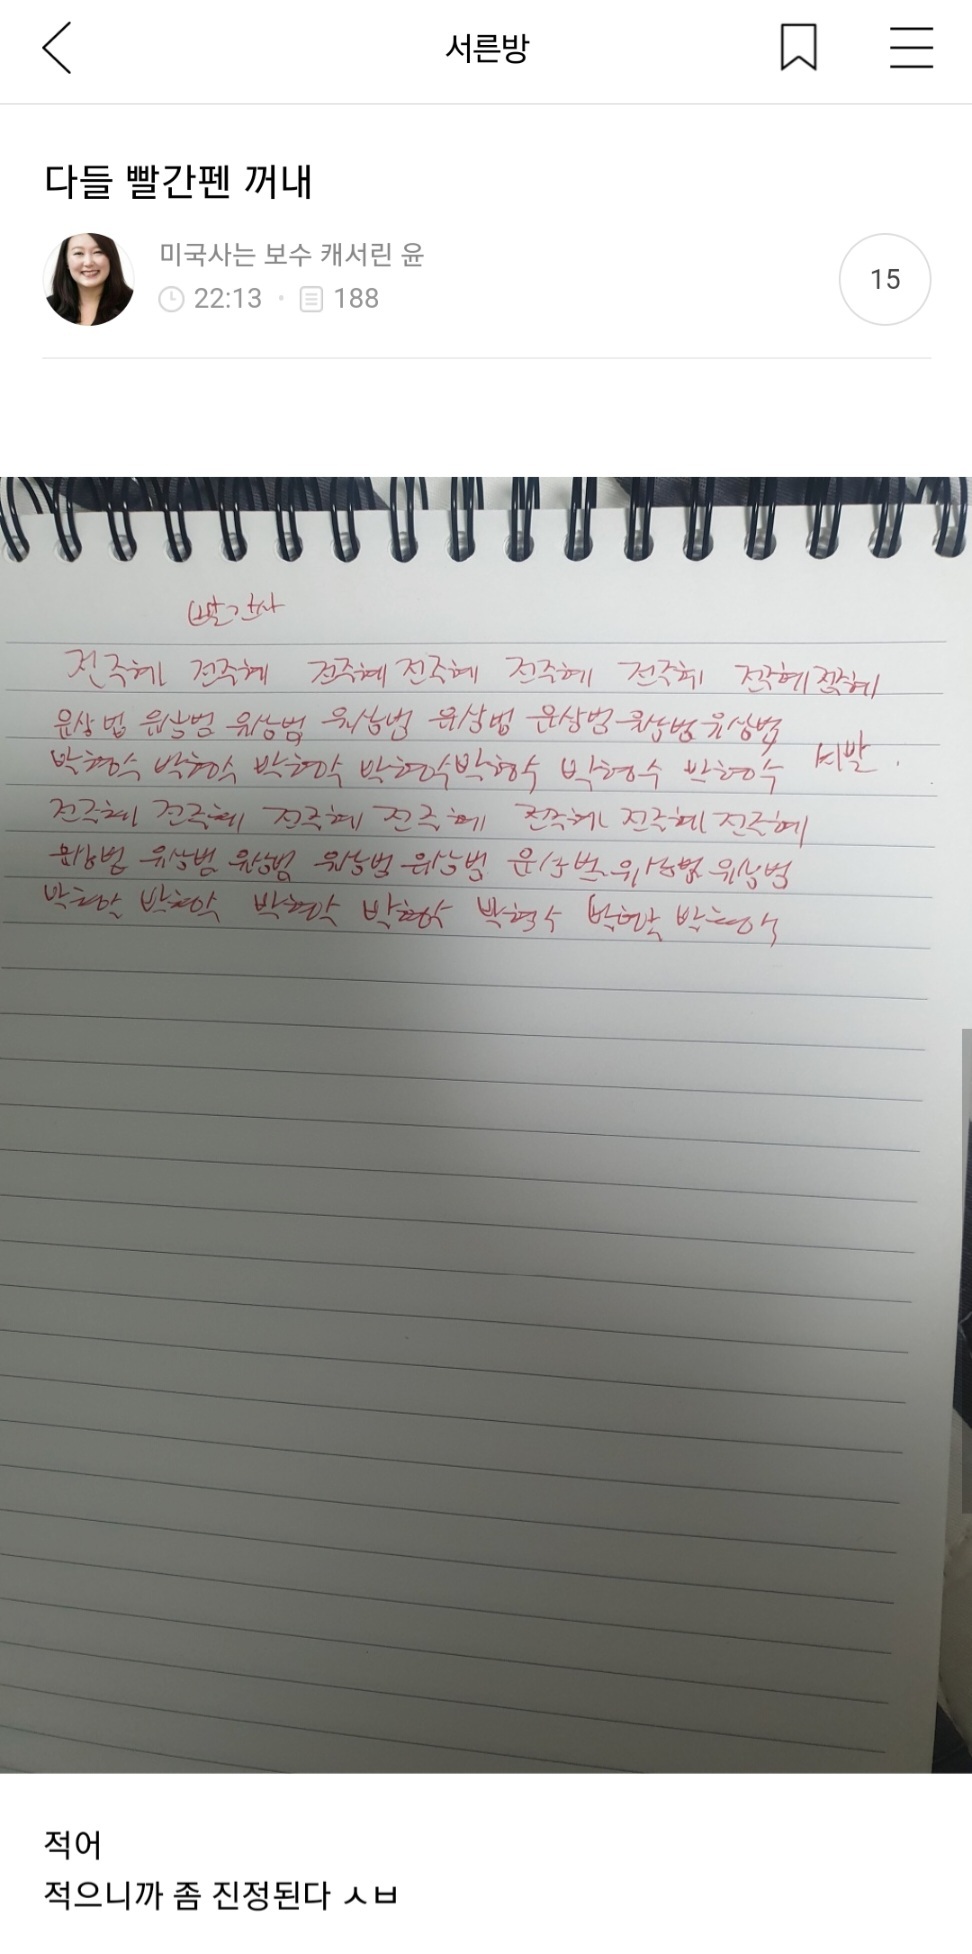 서른방
다들 빨간펜 꺼내
미국사는 보수 캐서린 윤
22:13 · 188
15
전주혜 전주혜 전주혜 전주혜 전주혜 전주혜 전주혜 전주혜
유상범 유상범 유상범 유상범 유상범 유상범 유상범 유상범
박형수 박형수 박형수 박형수 박형수 박형수 박형수 씨발.
전주혜 전주혜 전주혜 전주혜 전주혜 전주혜 전주혜
유상범 유상범 유상범 유상범 유상범 유상범 유상범 유상범
박형수 박형수 박형수 박형수 박형수 박형수 박형수
적어
적으니까 좀 진정된다 ㅅㅂ